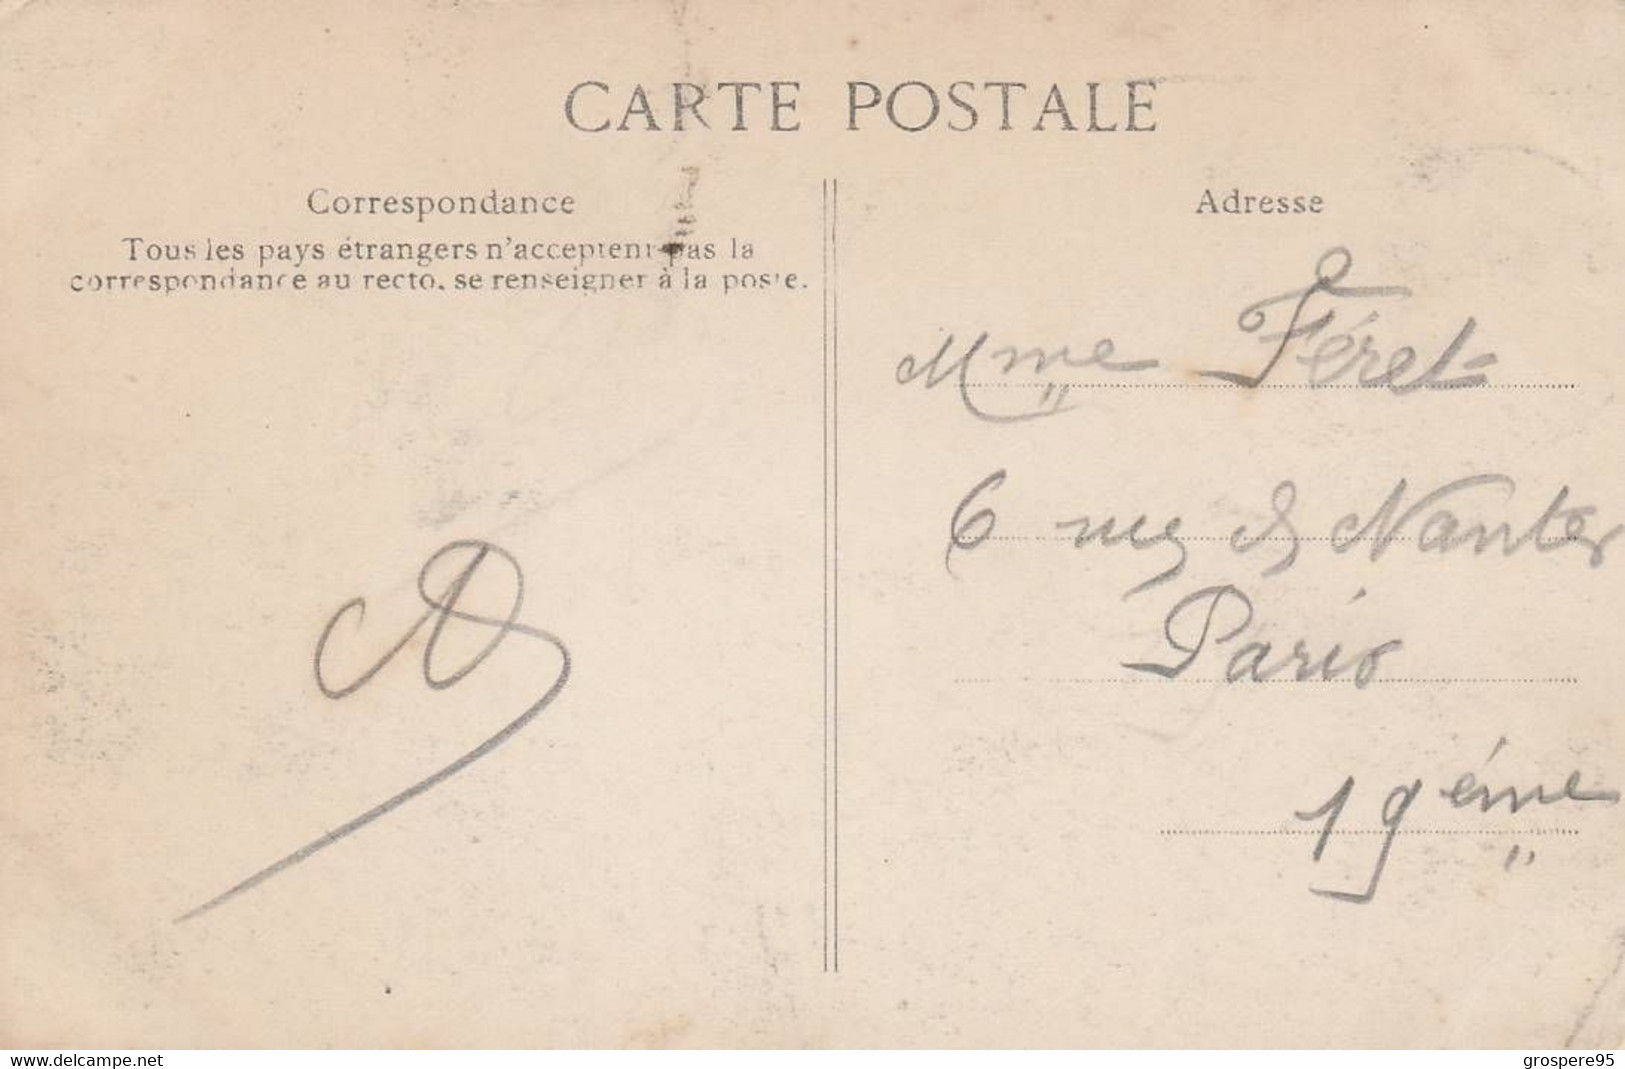 CARTE POSTALE
Correspondance
Tous les pays étrangers n'acceptent pas la
correspondance au recto, se renseigner à la poste.
Adresse
Mme Féret
6 rue de Nantes
Paris
19ème
www.delcampe.net
grospere95